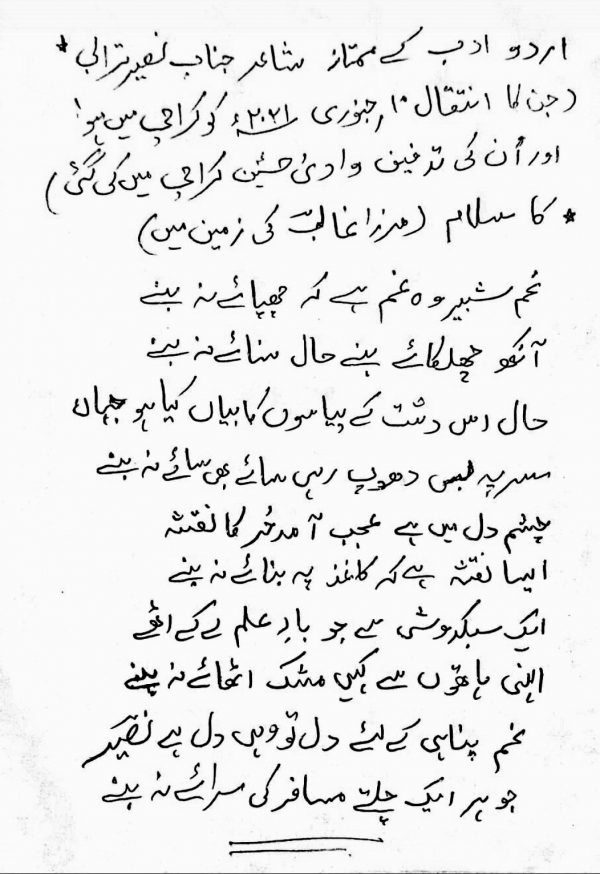 اردو ادب کے ممتاز شاعر جناب نصیر ترابی *
(جن کا انتقال ۱۰ جنوری ۲۰۲۱ء کو کراچی میں ہوا
اور اُن کی تدفین وادیٔ حسین کراچی میں کی گئی)
* کا سلام (مرزا غالبؔ کی زمین میں)
غم شبیر وہ غم ہے کہ چھپائے نہ بنے
آنکھ چھلکائے بنے حال سنائے نہ بنے
حال اس دشت کے پیاسوں کا بیاں کیا ہو جہاں
سر پہ بس دھوپ رہی سائے بھی سائے نہ بنے
چشم دل میں ہے عجب آمد حُر کا نقشہ
ایسا نقشہ ہے کہ کاغذ پہ بنائے نہ بنے
ایک سبکدوشی سے جو بارِ علم لے کے اٹھے
انہی ہاتھوں سے کہیں مشک اٹھائے نہ بنے
غم پناہی کے لئے دل تو وہی دل ہے نصیر
جو ہر ایک چلتے مسافر کی سرائے نہ بنے